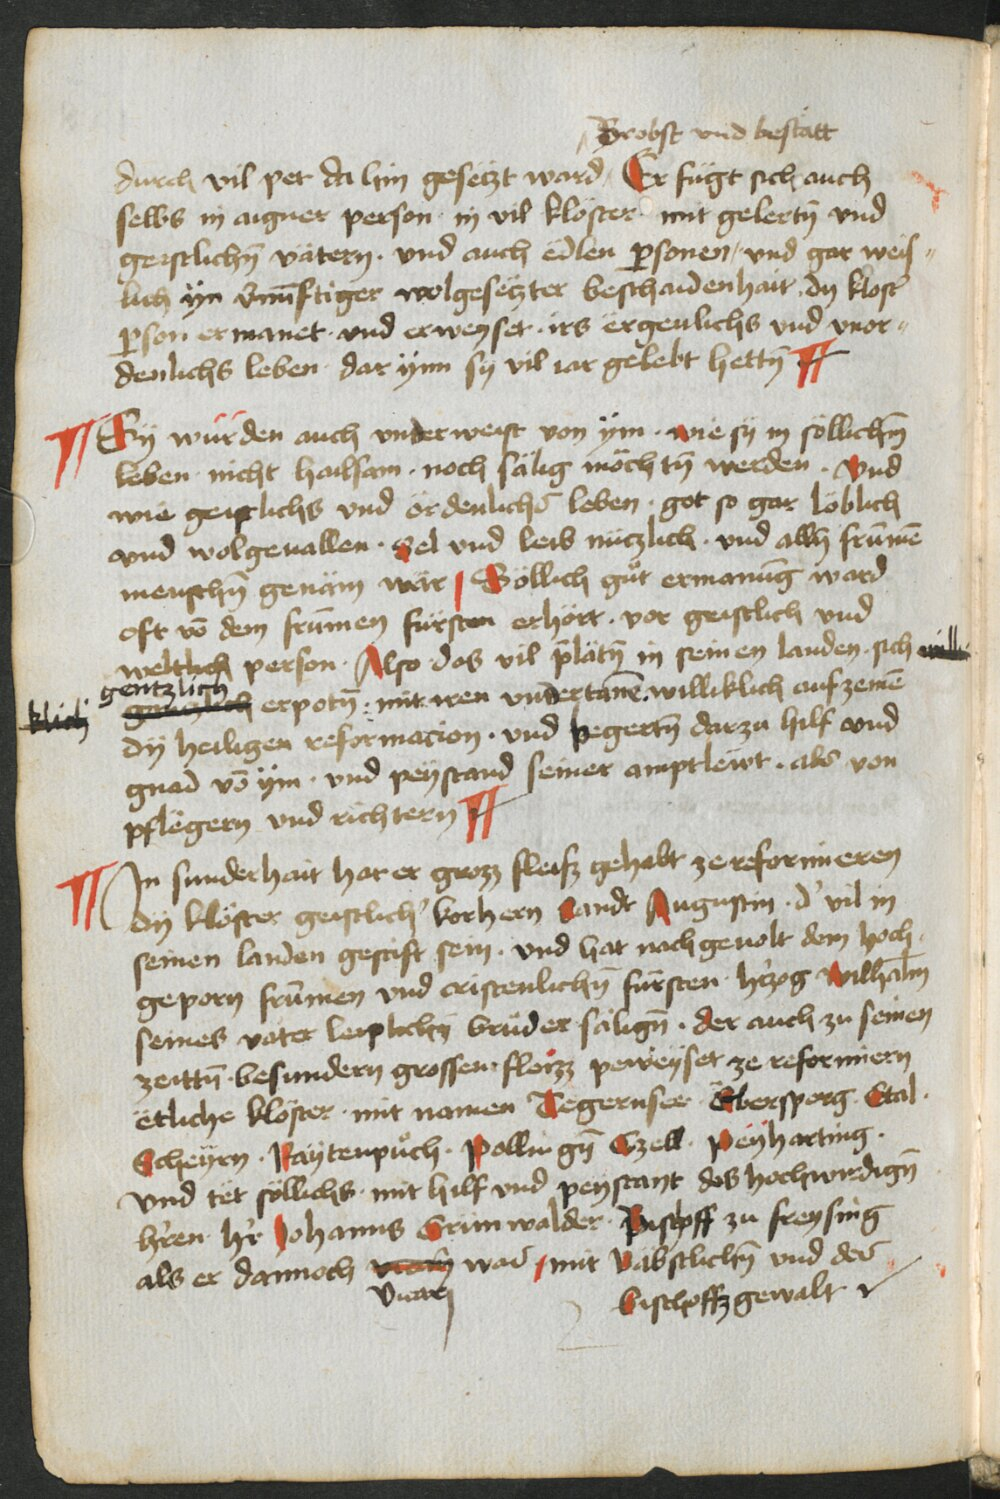 Brobst vnd bestätt
durch vil pet da hin gesetzt ward Er fügt sich auch
selbs in aigner person · in vil klöster · mit gelertn̄ vnd
geistlichn̄ vätern · vnd auch edlen ꝑsonen / vnd gar weis〃
lich ÿn v̄nu̅ftiger wolgesetzter beschaidenhait dy klost̄
ꝑson ermanet · vnd erweyset · irs ergerlichs vnd vnor〃
denlichs leben · dar ÿnn sy vil iar gelebt hettn̄
Sÿ würden auch vnderweist von ÿm · wie sÿ in söllichn̄
leben · nicht hailsam · noch sälig möchtn̄ werden · Vnd
wie geistlichs vnd ördenlichs leben · got so gar löblich
vnd wolgeuallen · Sel vnd leib nüczlich · vnd alln̄ frümē
menschn̄ genäm wär Söllich gůt ermanu̅g ward
oft vō dem fru̅men fürsten erhört · vor geistlich vnd
weltlich person · Also das vil p̄lätn̄ in seinen landen · sich willi
klich gentzlich gantzlich erpotn̄ : mit iren vndertanē williklich aufzenemē
dÿ heiligen reformacion · vnd begertn̄ darzu hilf vnd
gnad vō ÿm · vnd peystand seiner amptlewt · als von
pflëgern vnd richtern
In sunderhait hat er grozz fleisz gehabt ze reformieren
dÿ klöster geistlich' korhern Sandt Augustin · d' vil in
seinen landen gestift sein · vnd hat nachgeuolt dem hoch
geporn fru̅men vnd cristenlichn̄ fürsten · h'czog wilhalm
seines vater leiplichn̄ brüder sälign̄ · der auch zu seinen
zeittn̄ · besundern grossen fleizz peweyset ze reformiern
ëtliche klöster · mit namen Tegernsee · Ebersperg · Etal ·
Scheÿrn · Raÿtenpůch · Pollingn̄ Czell · Peÿharting ·
vnd tët söllichs · mit hilf vnd peystant des hochwirdign̄
h'ren · h'r Johanns Grünwalder · Bischoff zu freysing
als er dannoch vicarj was / mit Babstlichn̄ vnd des
Vicarj
bischoffz gewalt